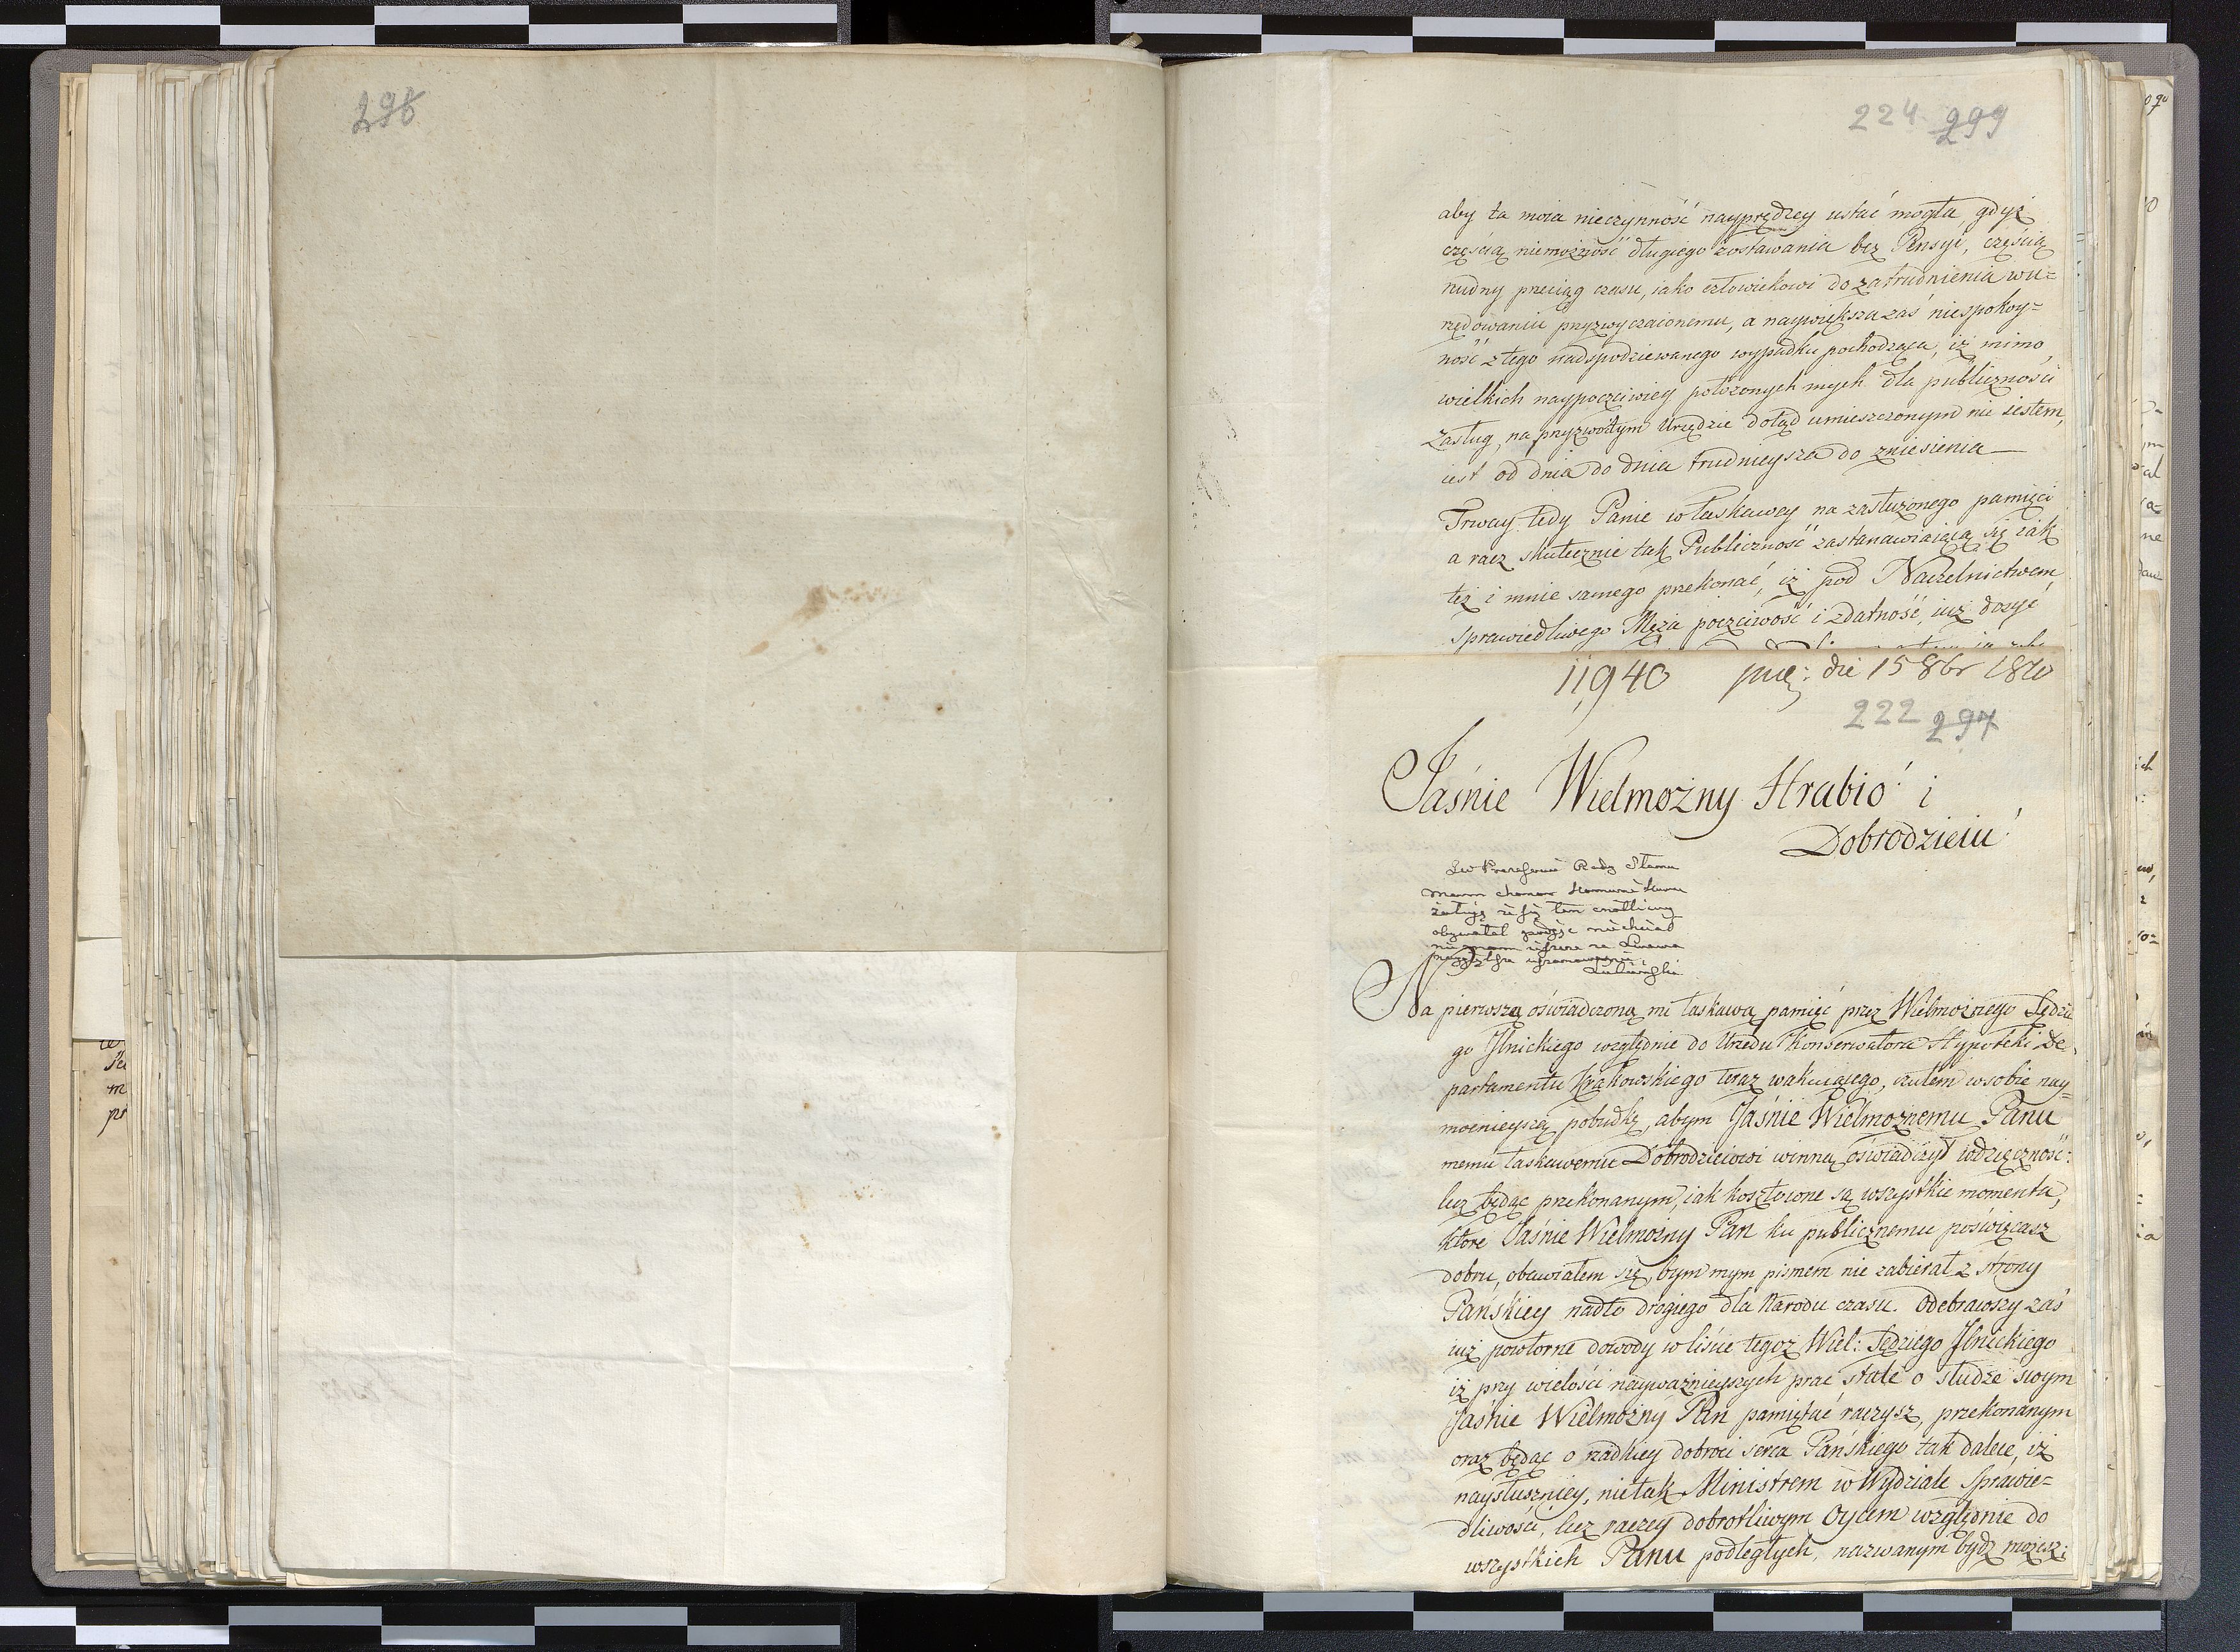 298
224 299
aby ta moia nieczynność nayprędzey ustać mogła, gdyż
częścią niemożność długiego zostawania bez Pensyi, częścią
nudny przeciąg czasu, iako człowiekowi do zatrudnienia w u=
rzędowaniu przyzwyczaionemu, a naywiększa zaś niespokoy=
ność z tego nadspodziewanego wypadku pochodząca, iż mimo
wielkich naypoczciwiey położonych mych dla publiczności
zasług, na przyzwoitym Urzędzie dotąd umieszczonym nie iestem,
iest od dnia do dnia trudnieysza do zniesienia
Trway tedy Panie w łaskawey na zasłużonego pamięci
a racz skutecznie tak Publiczność zastanawiaiącą się iak
też i mnie samego przekonać, iż pod Naczelnictwem,
sprawiedliwego Męża poczciwość i zdatność, iuż dosyć
11,940 die 15 8br 1810
222 297
Jaśnie Wielmożny Hrabio! i
Dobrodzieiu!
Rady Stanu
mam honor
żałuję że się ten
obywatel niechciał
Na pierwszą oświadczoną mi łaskawą pamięć przez Wielmożnego Sędzie
go Ilnickiego względnie do Urzędu Konserwatora Hypoteki De=
partamentu Krakowskiego teraz wakuiącego, czułem w sobie nay=
mocnieyszą pobudkę, abym Jaśnie Wielmożnemu Panu
memu łaskawemu Dobrodzieiowi winną oświadczył wdzięczność:
lecz będąc przekonanym, iak kosztowne są wszystkie momenta,
które Jaśnie Wielmożny Pan ku publicznemu poświęcasz
dobru, obawiałem się, bym mym pismem nie zabierał z strony
Pańskiey nadto drogiego dla Narodu czasu. Odebrawszy zaś
iuż powtorne dowody w liście tegoż Wiel: Sędziego Ilnickiego
iż przy wielości nayważnieyszych prac stale o słudze swym
Jaśnie Wielmożny Pan pamiętać raczysz, przekonanym
oraz będąc o rzadkiey dobroci serca Pańskiego tak dalece, iż
naysłuszniey, nietak Ministrem w Wydziale Sprawie=
dliwości, lecz raczey dobrotliwym Oycem względnie do
wszystkich Panu podległych, nazwanym bydź możesz: